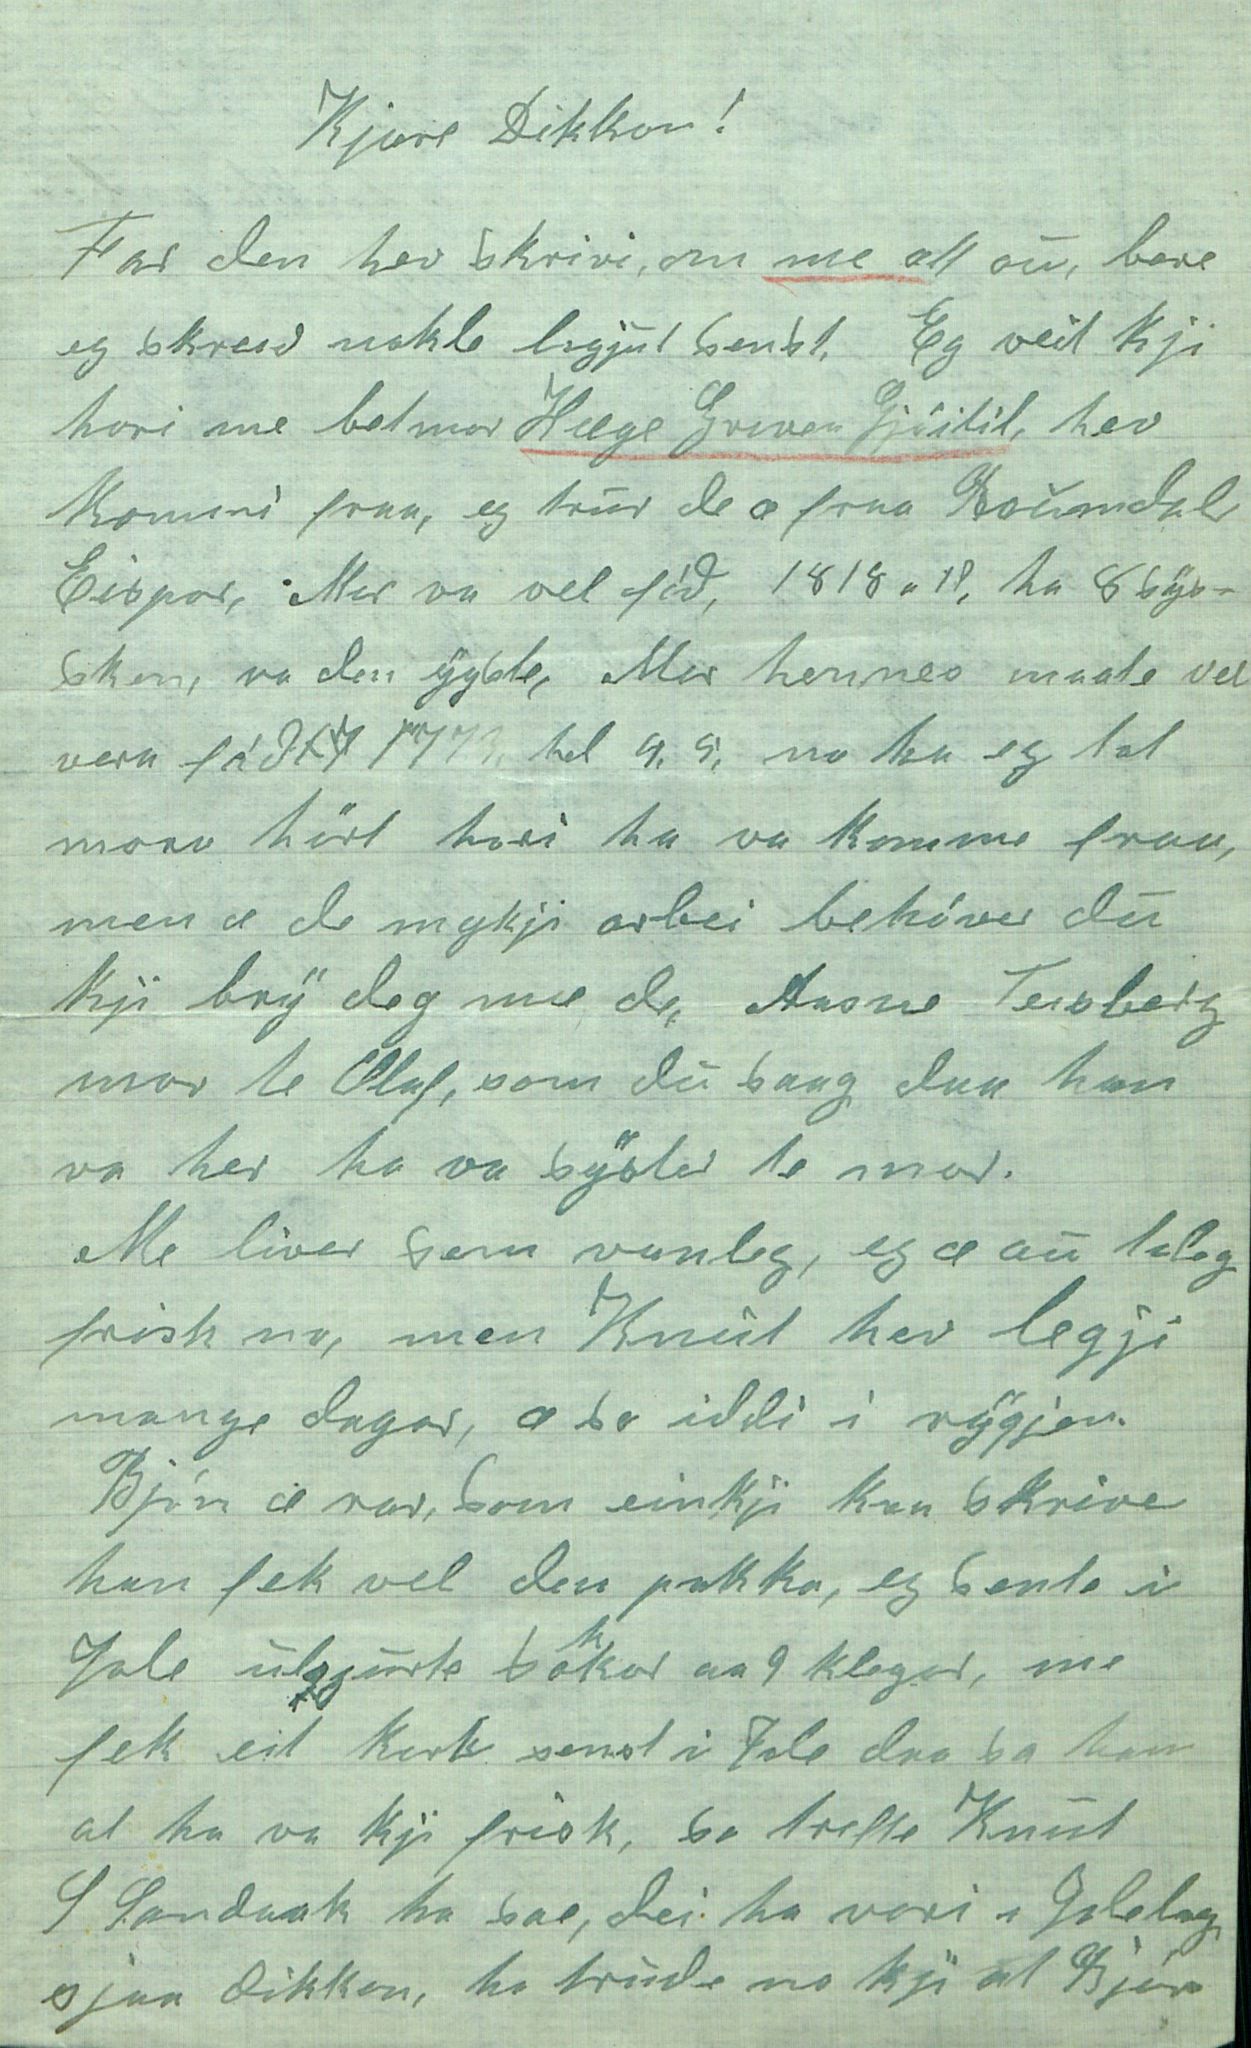 Kjære Dikkon!
Far den hev skrivi, om me alt aū, bare
eg skreiv nokle ligjūt senst. Eg veit kji
hori me betmor Hæge Greven Gjóitil, hev
kommi fraa, eg trūr de æ fraa Boūmdals
Eispor, Mor va vel fód, 1818 a 19, ha 8 sÿs-
sken, va den ÿgste, Mor hennes maate vel
vera fádt 1773, hel 4, 5, no ha eg tat
mora hört hori ha va komme fraa,
men æ de mykji arbei behóver dū
kji brÿ deg mæ de, Aasne Teisberg
mor te Olaf, som dū saag daa han
va her ha va sÿster te mor.
Me liver som vanleg, eg æ aū toleg
frisk no, men Knūt hev legji
mange dagar, æ so iddi i rÿgjen.
Bjón æ rar, som einkji kan skrive
han fek vel den pakka, eg sente i
Jole ūlgjūrte sokkar aa 9 klegar, me
fek eit kort senst i Jole daa sa han
at ha va kji frisk, so trefte Knūt
S Sandaak ha sae, dei ha vori i Jolelag
sjaa Dikkon, ha trūde no kji at Bjón